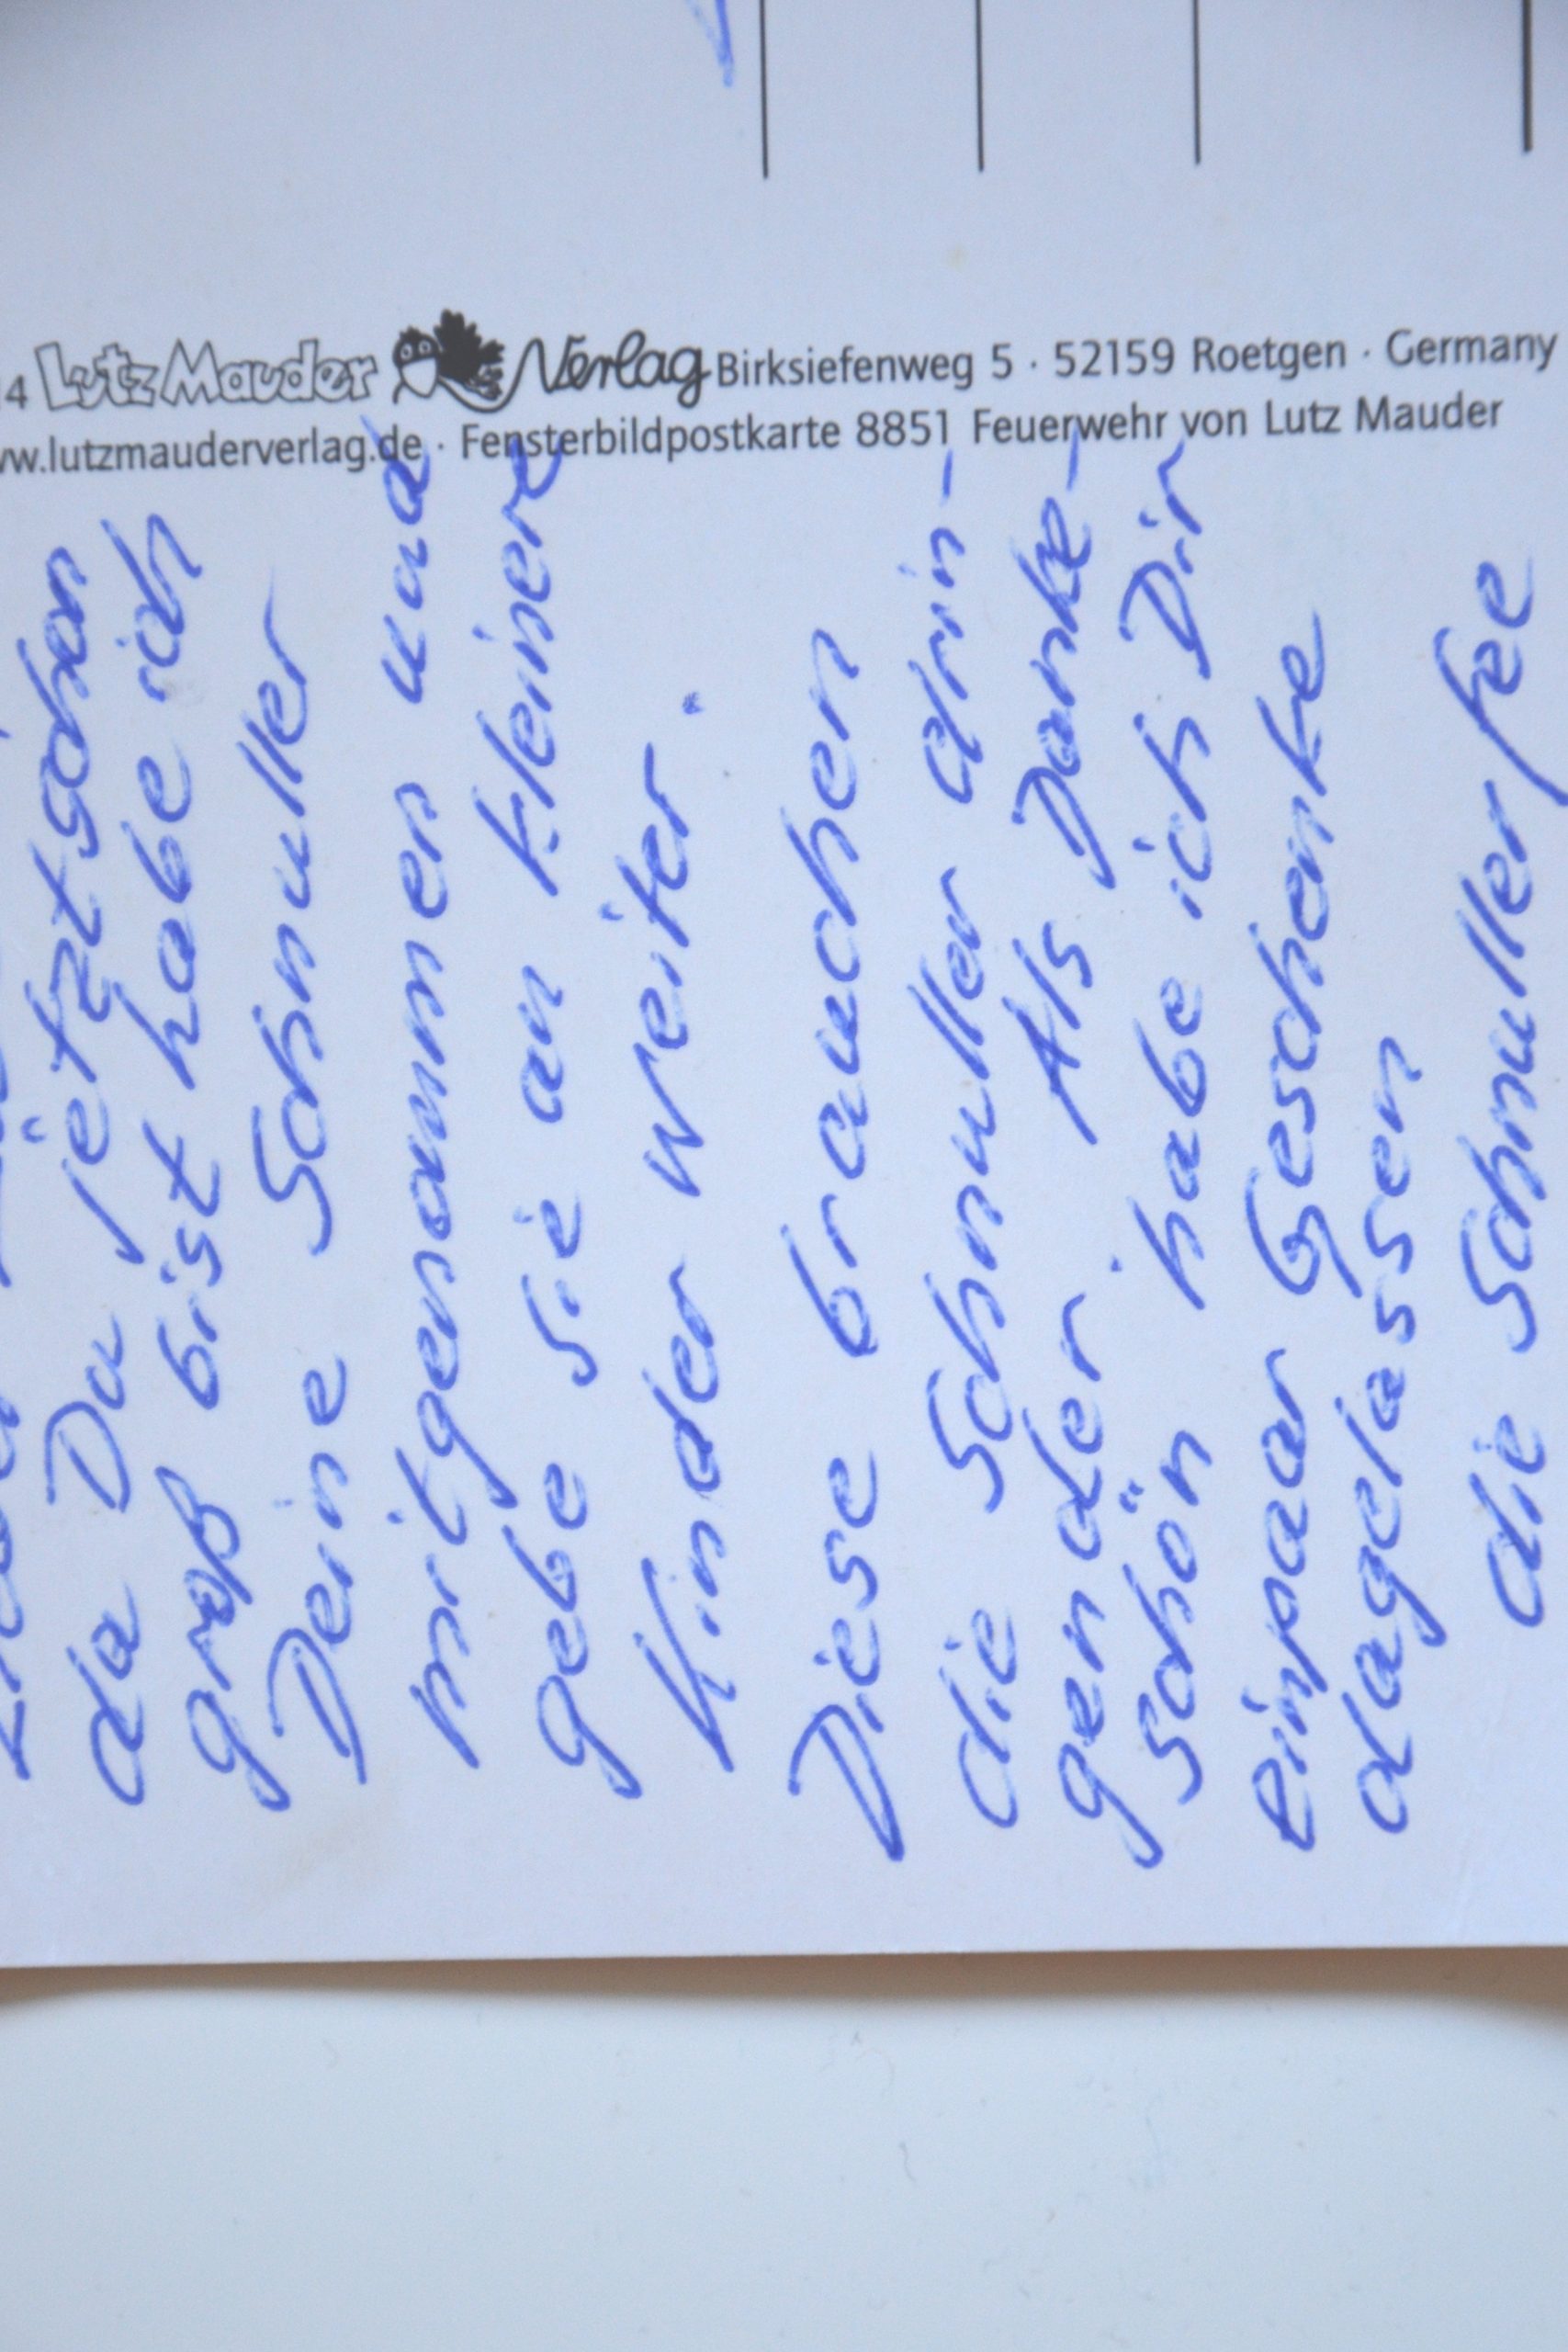 da Du jetzt schon
groß bist habe ich
Deine Schnuller
mitgenommen und
gebe sie an kleinere
Kinder weiter.
Diese brauchen
die Schnuller drin-
gender. Als Danke-
schön habe ich Dir
einpaar Geschenke
dagelassen
die Schnullerfee
4 Lutz Mauder Verlag Birksiefenweg 5 · 52159 Roetgen · Germany
w.lutzmauderverlag.de · Fensterbildpostkarte 8851 Feuerwehr von Lutz Mauder